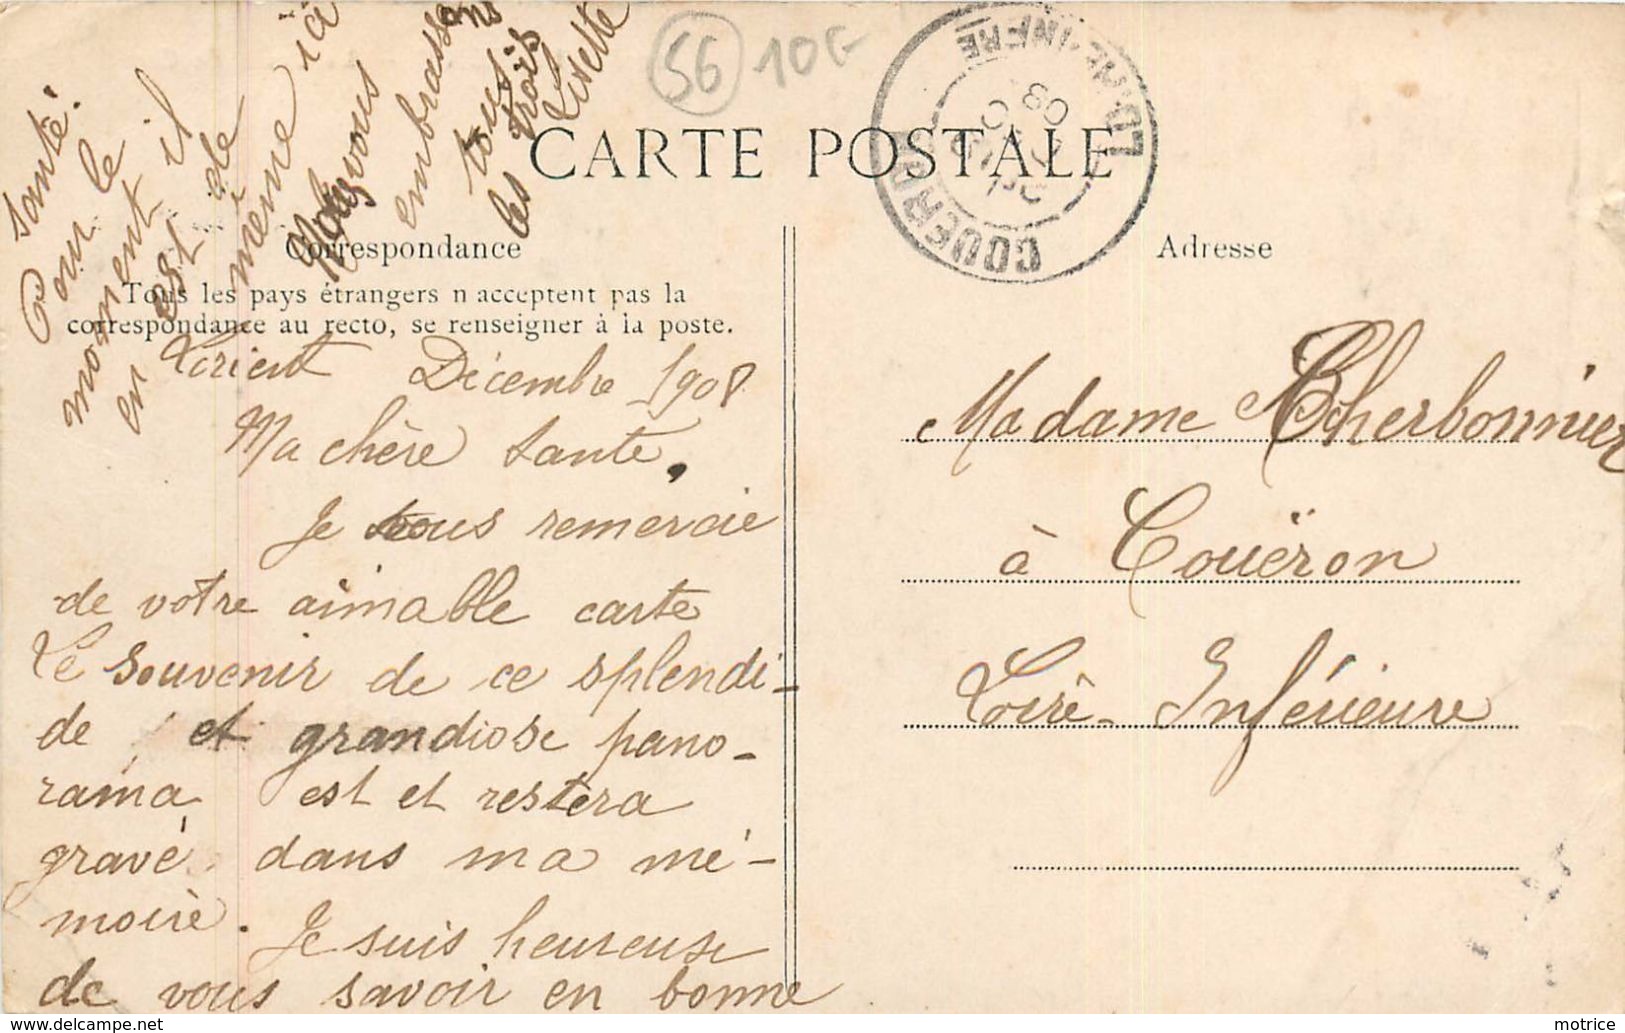 56 10 G
CARTE POSTALE
Correspondance
Adresse
Tous les pays étrangers n'acceptent pas la
correspondance au recto, se renseigner à la poste.
COUERON
LOIRE-INFRE
08
Lorient Décembre 1908
Ma chère tante,
Je vous remercie
de votre aimable carte
Le souvenir de ce splendi-
de, et grandiose pano-
rama est et restera
gravé dans ma mé-
moire. Je suis heureuse
de vous savoir en bonne
santé.
Pour le
moment il
en est de
même ici
Nous vous
embrassons
tous
les trois
Lisette
Madame Cherbonnier
à Couëron
Loire-Inférieure
motrice